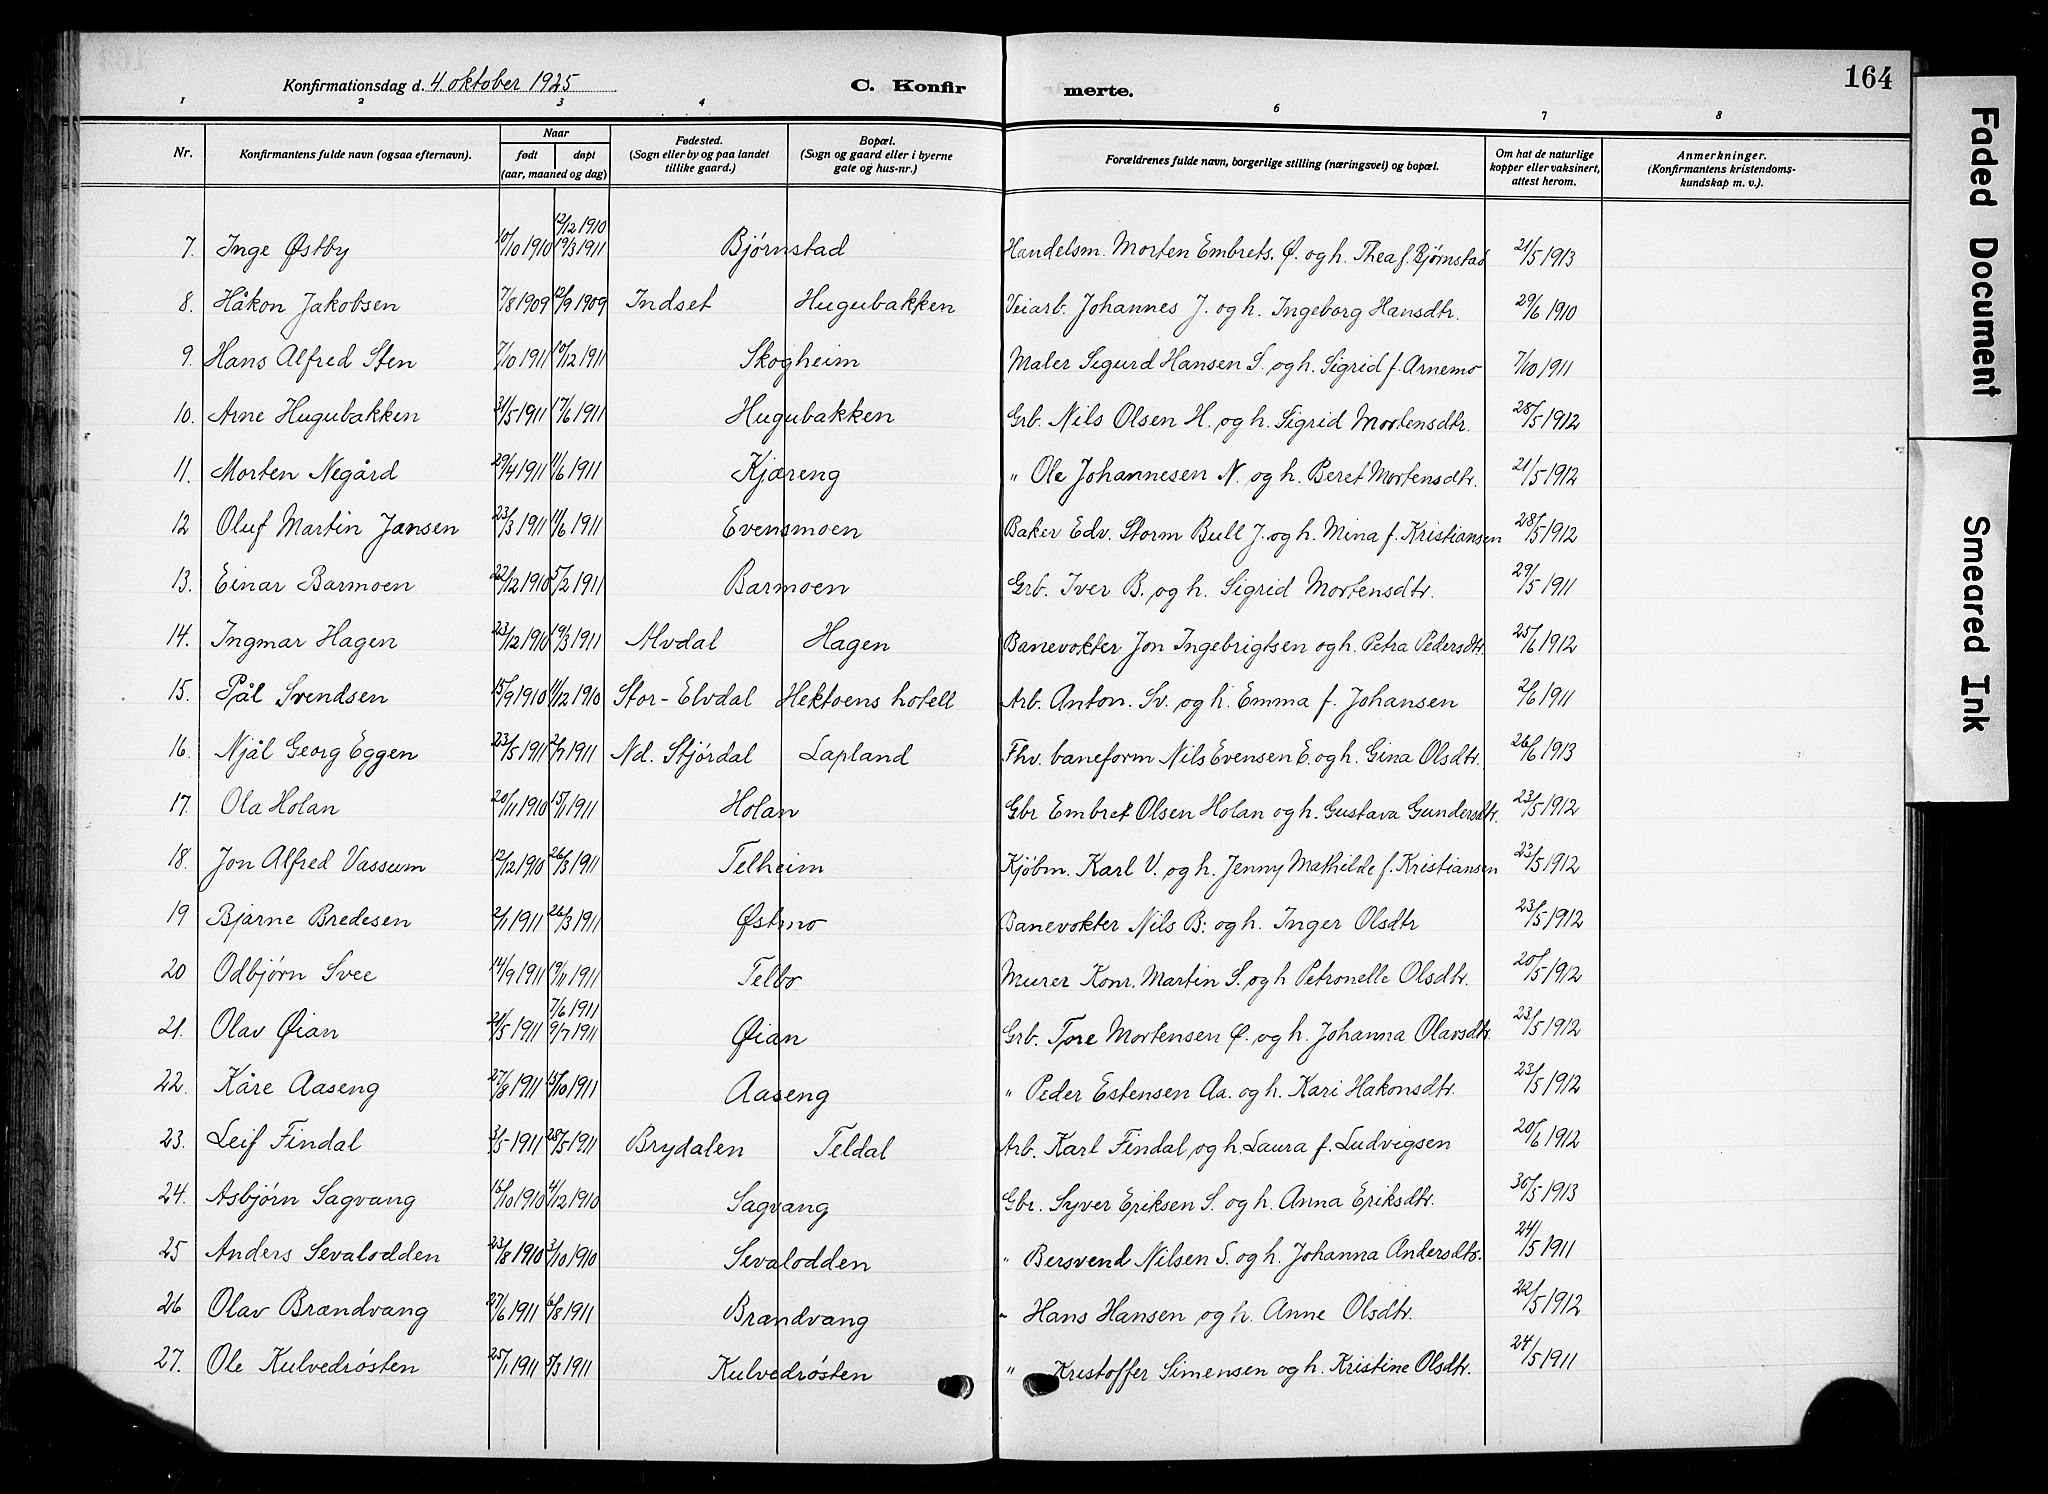 Konfirmationsdag d. 4. oktober 1925 C. Konfir merte. 164
1 2 3 4 6 7 8
Nr. Konfirmantens fulde navn (ogsaa efternavn). Naar født døpt (aar, maaned og dag) Fødested. (Sogn eller by og paa landet tillike gaard.) Bopæl. (Sogn og gaard eller i byerne gate og hus-nr.) Forældrenes fulde navn, borgerlige stilling (næringsvei) og bopæl. Om hat de naturlige kopper eller vaksinert, attest herom. Anmerkninger. (Konfirmantens kristendoms-kundskap m. v.).
12/12 1910
7. Inge Østby 10/10 1910 19/3 1911 Bjørnstad Handelsm. Morten Embrets. Ø. og h. Thea f. Bjørnstad 21/5 1913
8. Håkon Jakobsen 7/8 1909 12/9 1909 Indset Hugubakken Veiarb. Johannes J. og h. Ingeborg Hansdtr. 29/6 1910
9. Hans Alfred Sten 7/10 1911 10/12 1911 Skogheim Maler Sigurd Hansen S. og h. Sigrid f. Arnemo 7/10 1911
10. Arne Hugubakken 31/5 1911 17/6 1911 Hugubakken Grb. Nils Olsen H. og h. Sigrid Mortensdtr. 28/5 1912
11. Morten Negård 29/4 1911 11/6 1911 Kjæreng " Ole Johannesen N. og h. Beret Mortensdtr. 21/5 1912
12 Oluf Martin Jansen 23/3 1911 11/6 1911 Evensmoen Baker Edv. Storm Bull J. og h. Mina f. Kristiansen 28/5 1912
13. Einar Barmoen 22/12 1910 5/2 1911 Barmoen Grb. Iver B. og h. Sigrid Mortensdtr. 29/5 1911
14. Ingmar Hagen 23/12 1910 19/3 1911 Alvdal Hagen Banevokter Jon Ingebrigtsen og h. Petra Pedersdtr. 25/6 1912
15. Pål Svendsen 15/9 1910 11/12 1910 Stor-Elvdal Hektoens hotell Arb. Anton. Sv. og h. Emma f. Johansen 2/6 1911
16. Njål Georg Eggen 23/5 1911 2/7 1911 Nd. Stjørdal Lapland Fhv. baneform Nils Evensen E. og h. Gina Olsdtr. 26/6 1913
17. Ola Holan 20/11 1910 15/1 1911 Holan Gbr Embret Olsen Holan og h. Gustava Gundersdtr. 23/5 1912
18. Jon Alfred Vassum 12/12 1910 26/3 1911 Telheim Kjøbm. Karl V. og h. Jenny Mathilde f. Kristiansen 23/5 1912
19 Bjarne Bredesen 2/1 1911 26/3 1911 Østmo Banevokter Nils B: og h. Inger Olsdtr 23/5 1912
20 Odbjørn Svee 14/9 1911 19/11 1911 Telbo Murer Konr. Martin S. og h Petronelle Olsdtr. 20/5 1912
7/6 1911
21. Olav Øian 21/5 1911 9/7 1911 Øian Grb. Tore Mortensen Ø. og h. Johanna Olavsdtr. 23/5 1912
22. Kåre Aaseng 27/8 1911 15/10 1911 Aaseng " Peder Estensen Aa. og h. Kari Hakonsdtr. 23/5 1912
23. Leif Findal 3/5 1911 28/5 1911 Brydalen Teldal Arb. Karl Findal og h. Laura f. Ludvigsen 20/6 1912
24. Asbjørn Sagvang 16/10 1910 4/12 1910 Sagvang Gbr. Syver Eriksen S. og h. Anna Eriksdtr. 30/5 1913
25 Anders Sevalodden 23/8 1910 3/10 1910 Sevalodden " Bersvend Nilsen S. og h. Johanna Andersdtr. 24/5 1911
26 Olav Brandvang 27/6 1911 6/8 1911 Brandvang " Hans Hansen og h. Anne Olsdtr. 22/5 1912
27. Ole Kulvedrøsten 25/1 1911 5/3 1911 Kulvedrøsten " Kristoffer Simensen og h. Kristine Olsdtr. 24/5 1911
Faded Document
Smeared Ink